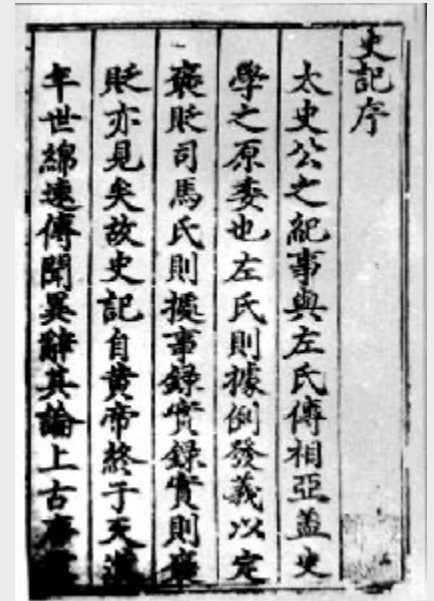 史記序
太史公之紀事與左氏傳相亞盖史
學之原委也左氏則據例發義以定
褒貶司馬氏則據事錄實錄實則褒
貶亦見矣故史記自黄帝終于天漢
年世綿遠傳聞異辭其論上古